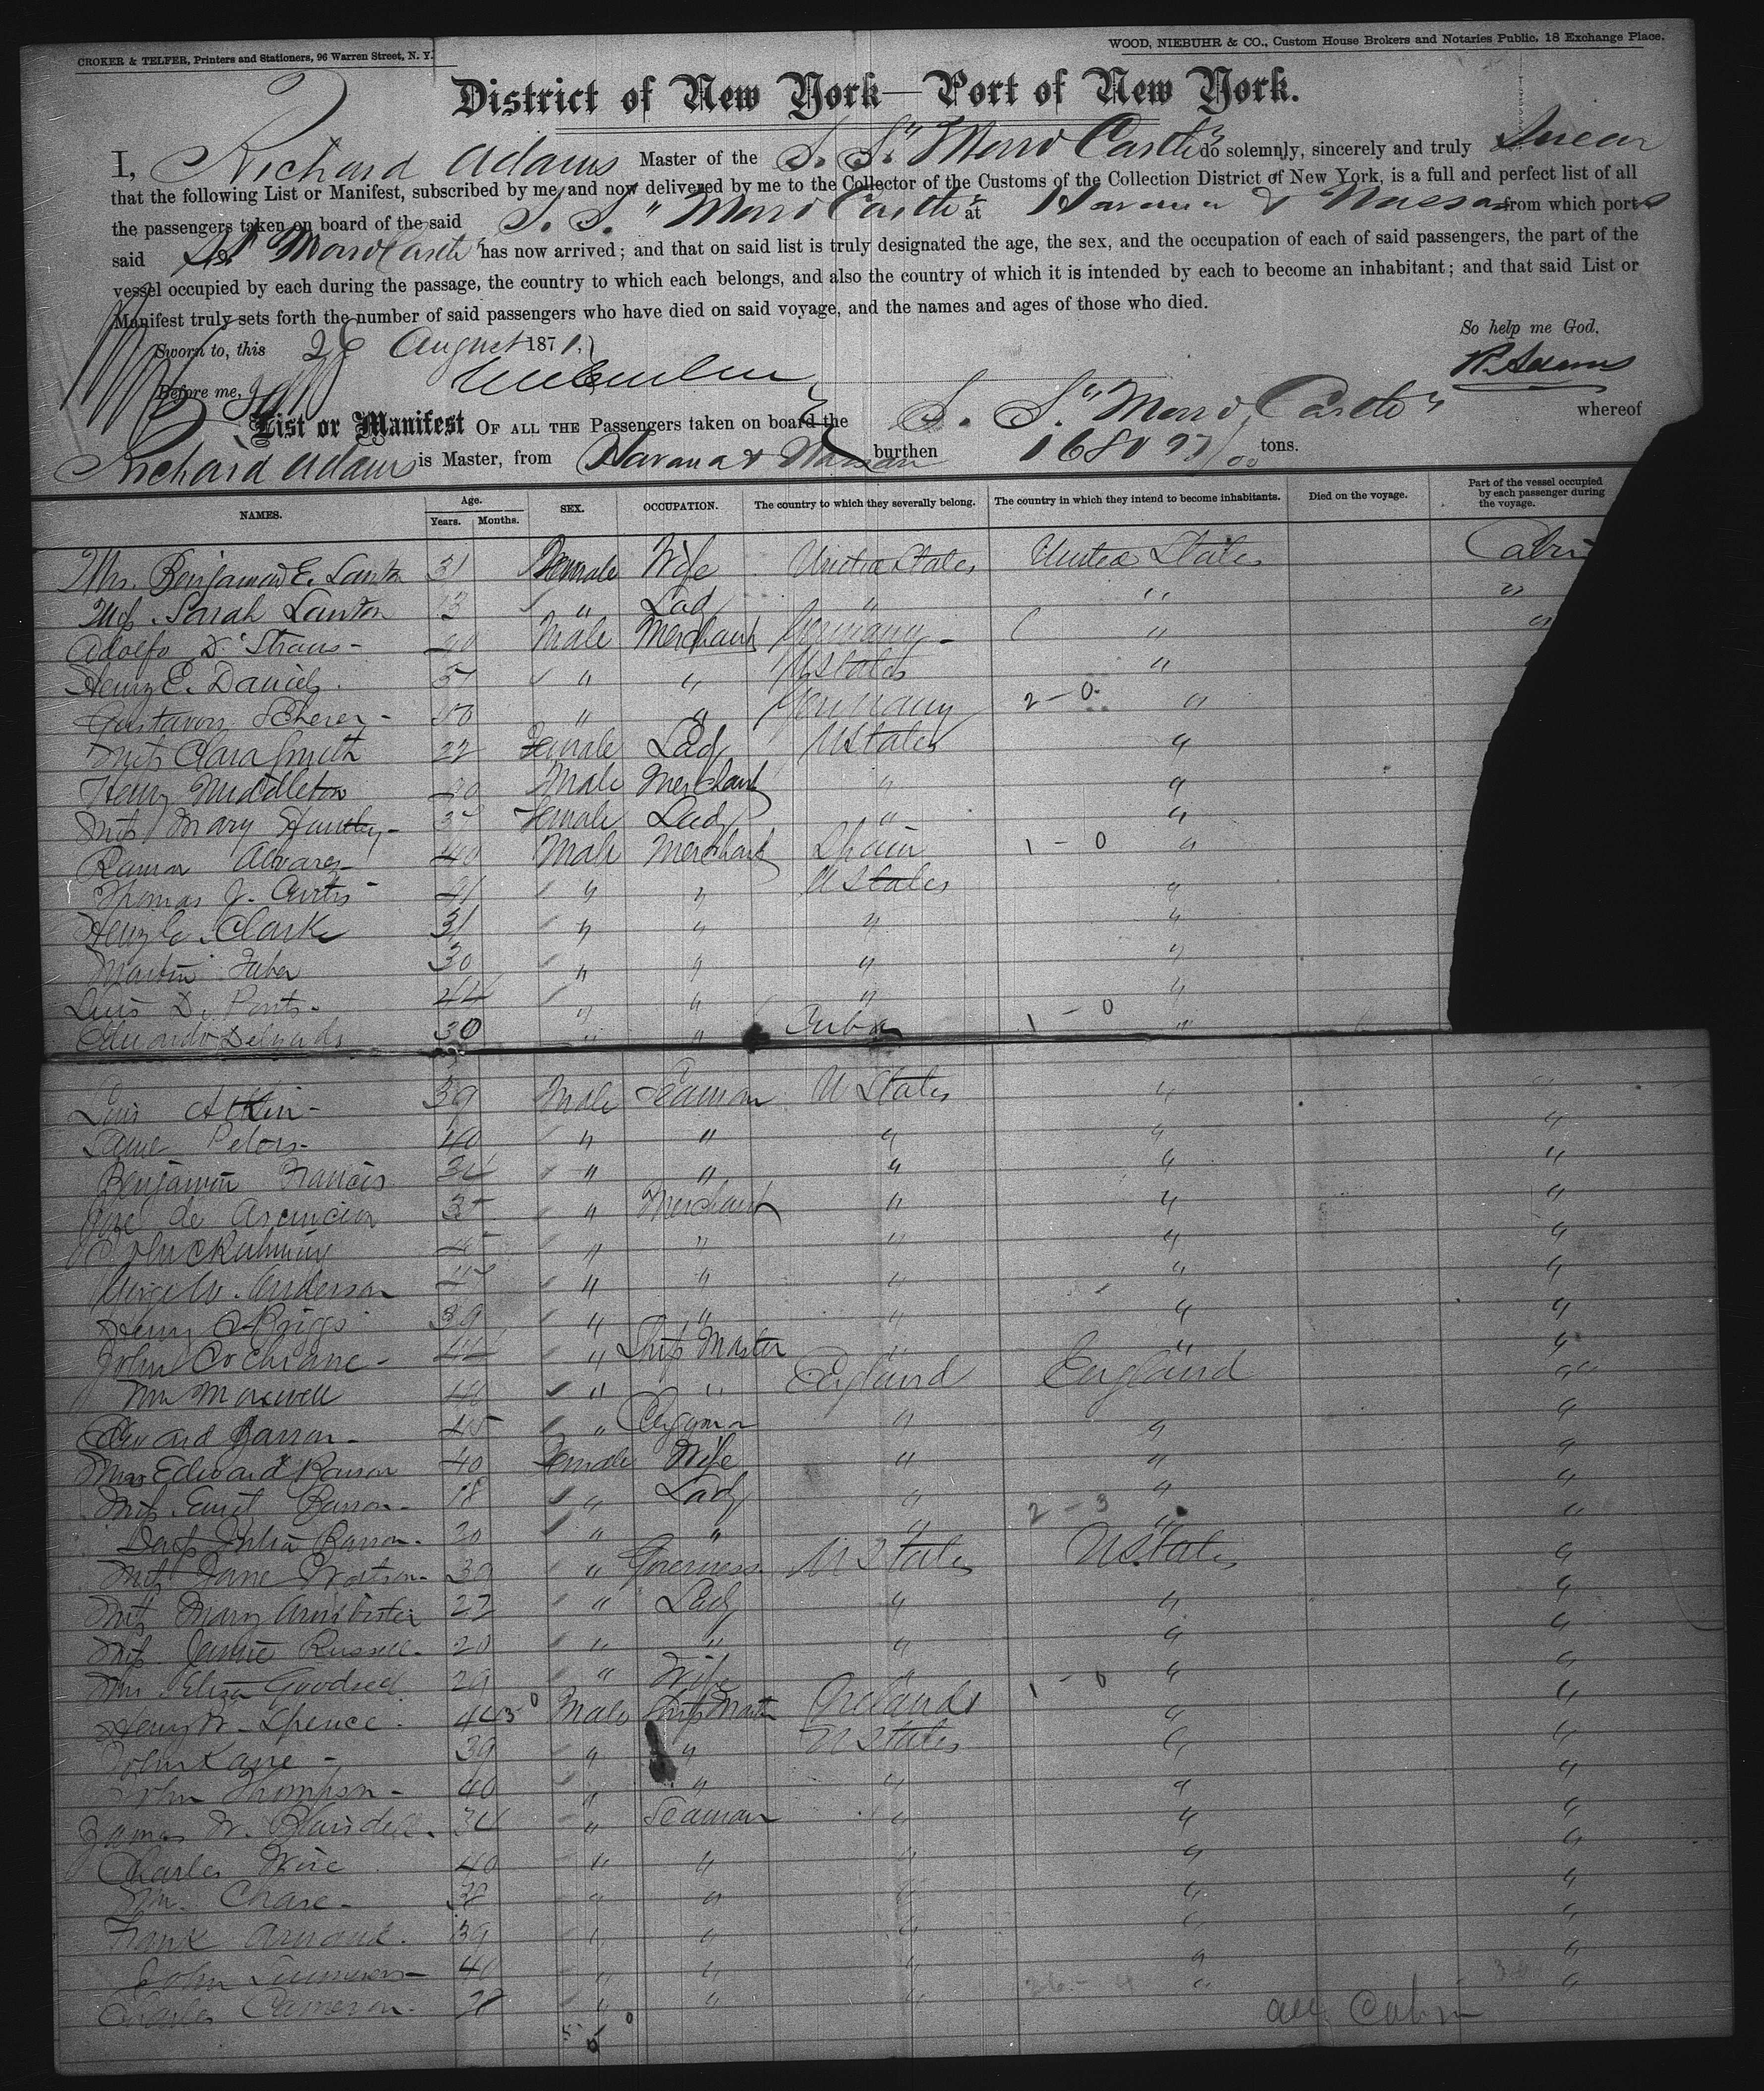 CROKER & TELFER, Printers and Stationers, 96 Warren Street, N. Y.
WOOD, NIEBUHR & CO., Custom House Brokers and Notaries Public, 18 Exchange Place.
District of New York—Port of New York.
I, Richard Adams Master of the S. S. "Morro Castle" do solemnly, sincerely and truly Swear
that the following List or Manifest, subscribed by me, and now delivered by me to the Collector of the Customs of the Collection District of New York, is a full and perfect list of all
the passengers taken on board of the said S. S. "Morro Castle" at Havana & Nassau from which ports
said SS. Morro Castle has now arrived; and that on said list is truly designated the age, the sex, and the occupation of each of said passengers, the part of the
vessel occupied by each during the passage, the country to which each belongs, and also the country of which it is intended by each to become an inhabitant; and that said List or
Manifest truly sets forth the number of said passengers who have died on said voyage, and the names and ages of those who died.
So help me God,
Sworn to, this 26 August 1871.
R. Adams
Before me,
List or Manifest OF ALL THE Passengers taken on board the S. S. "Morro Castle" whereof
Richard Adams is Master, from Havana & Nassau burthen 1680 97/00 tons.
NAMES. Age. Years. Months. SEX. OCCUPATION. The country to which they severally belong. The country in which they intend to become inhabitants. Died on the voyage. Part of the vessel occupied by each passenger during the voyage.
Mrs. Benjamin E. Lawton 31 Female Wife United States United States Cabi
Miss Sarah Lawton 13 " Lady " " "
Adolfo D. Straus - 40 Male Merchant Germany - " "
Henry E. Daniels. " " U States "
Gustavos Scherer - " " Germany 2 - 0 "
Miss Clara Smith 22 Female Lady U States "
Henry Middleton Male Merchant " "
Miss Mary Female Lady " "
Ramon Alvarez 40 Male Merchant Spain 1 - 0 "
Thomas J. Curtis - 41 " " U States "
Henry C. Clark 31 " " " "
Martin Faber 30 " " " "
Luis D. - 44 " " " "
Eduardo Delgado 30 " " Cuba 1 - 0 "
Luis Atkin - 39 Male Seaman U States " "
Peters - 40 " " " " "
Benjamin Francis 34 " " " " "
Jose de Asencion 35 " Merchant " " "
45 " " " " "
George W. Anderson " " " " "
Henry Briggs 39 " " " " "
John Cochrane - 44 " Ship Master " " "
Wm Maxwell " " England England "
Edward Ranson - 45 " Clergyman " " "
Mrs Edward Ranson 40 Female Wife " " "
Miss Ranson - 18 " Lady " " "
Miss Julia Ranson - 20 " " " 2 - 3 " "
Miss Jane Watson - 30 " Governess U States U States "
Miss Mary Armbrister 22 " Lady " " "
Miss Jennie Russell - 20 " " " " "
Mrs Eliza 29 " Wife " " "
Henry W. Spence - Male Ship Master Ireland 1 - 0 " "
John Kane - 39 " " U States " "
John Thompson - 40 " " " " "
James W. Blaisdell. 34 " Seaman " " "
Charles Wise 40 " " " " "
Wm. Chase - 38 " " " " "
Frank 39 " " " " "
John - 40 " " " " "
Charles Cameron - " " " " "
all Cabin